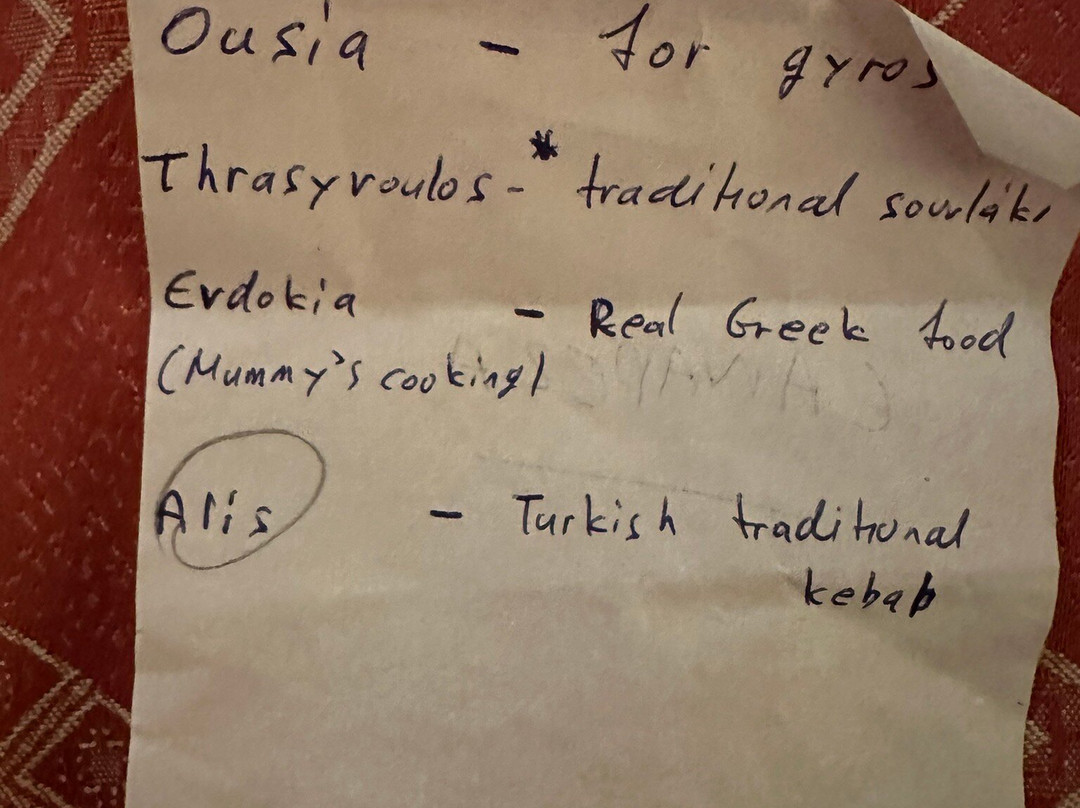 Ousia - for gyros
Thrasyvoulos - * traditional souvláki
Evdokia - Real Greek food
(Mummy's cooking)
Alis - Turkish traditional
kebab